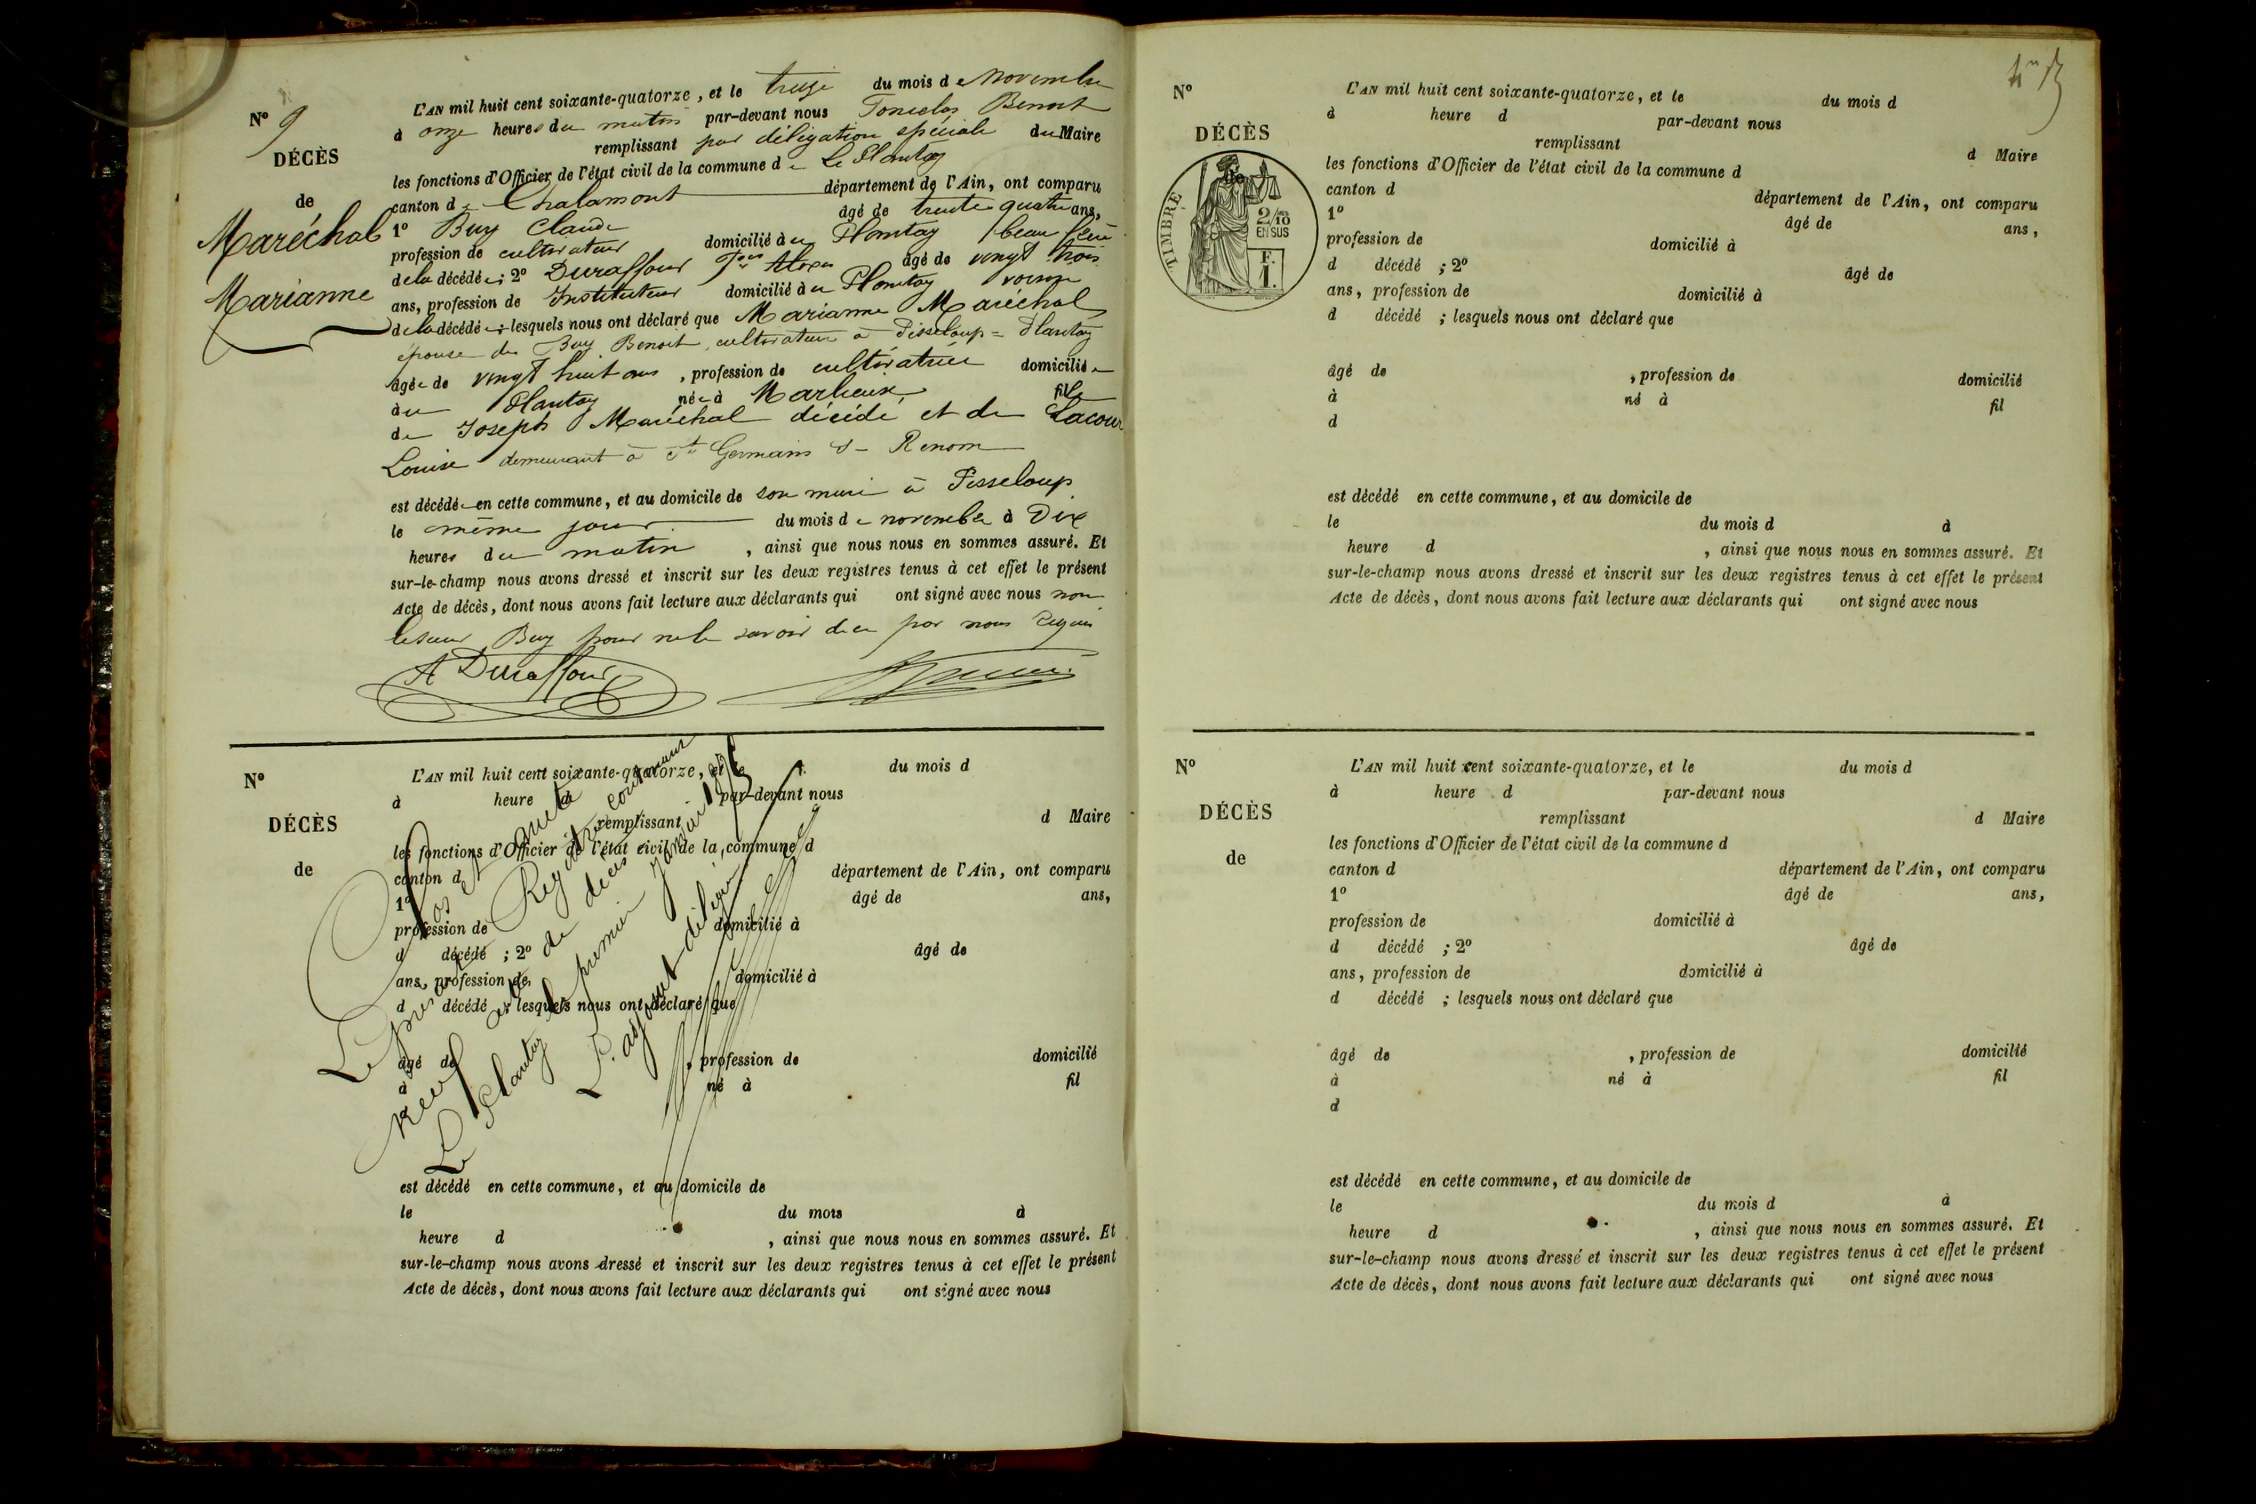 N° 9
DÉCÈS
de
Maréchal
Marianne
L'AN mil huit cent soixante-quatorze, et le treize du mois de Novembre
à onze heures du matin par-devant nous Benoit
remplissant par délégation spéciale du Maire
les fonctions d'Officier de l'état civil de la commune de Le Plantay
canton de Chalamont département de l'Ain, ont comparu
1° Buy Claude âgé de trente quatre ans,
profession de cultivateur domicilié à au Plantay beau frère
de la décédée; 2° Duraffour âgé de vingt trois
ans, profession de Instituteur domicilié à au Plantay voisin
de la décédée; lesquels nous ont déclaré que Marianne Maréchal
épouse de Buy Benoit, cultivateur à Pisseloup - Plantay
âgée de vingt huit ans, profession de cultivatrice domiciliée
à au Plantay née à Marlieux fille
de Joseph Maréchal décédé et de Lacour
Louise demeurant à St Germain s- Renom
est décédée en cette commune, et au domicile de son mari à Pisseloup
le même jour du mois de novembre à Dix
heures du matin, ainsi que nous nous en sommes assuré. Et
sur-le-champ nous avons dressé et inscrit sur les deux registres tenus à cet effet le présent
Acte de décès, dont nous avons fait lecture aux déclarants qui ont signé avec nous non
le sieur Buy pour ne le savoir de ce par nous requis
A Duraffour
N°
DÉCÈS
de
L'AN mil huit cent soixante-quatorze, et le du mois d
à heure d par-devant nous
remplissant d Maire
les fonctions d'Officier de l'état civil de la commune d
canton d département de l'Ain, ont comparu
1° âgé de ans,
profession de domicilié à
d décédé ; 2° âgé de
ans, profession de domicilié à
d décédé ; lesquels nous ont déclaré que
âgé de , profession de domicilié
à né à fil
est décédé en cette commune, et au domicile de
le du mois à
heure d , ainsi que nous nous en sommes assuré. Et
sur-le-champ nous avons dressé et inscrit sur les deux registres tenus à cet effet le présent
Acte de décès, dont nous avons fait lecture aux déclarants qui ont signé avec nous
Clos et arrêté
Le présent Registre contenant
neuf actes de décès
Le Plantay le premier Janvier
L'adjoint délégué,
N°
DÉCÈS
de
TIMBRE
2/10
EN SUS
F.
1.
L'AN mil huit cent soixante-quatorze, et le du mois d
à heure d par-devant nous
remplissant d Maire
les fonctions d'Officier de l'état civil de la commune d
canton d département de l'Ain, ont comparu
1° âgé de ans,
profession de domicilié à
d décédé ; 2° âgé de
ans, profession de domicilié à
d décédé ; lesquels nous ont déclaré que
âgé de , profession de domicilié
à né à fil
d
est décédé en cette commune, et au domicile de
le du mois d à
heure d , ainsi que nous nous en sommes assuré. Et
sur-le-champ nous avons dressé et inscrit sur les deux registres tenus à cet effet le présent
Acte de décès, dont nous avons fait lecture aux déclarants qui ont signé avec nous
N°
DÉCÈS
de
L'AN mil huit cent soixante-quatorze, et le du mois d
à heure d par-devant nous
remplissant d Maire
les fonctions d'Officier de l'état civil de la commune d
canton d département de l'Ain, ont comparu
1° âgé de ans,
profession de domicilié à
d décédé ; 2° âgé de
ans, profession de domicilié à
d décédé ; lesquels nous ont déclaré que
âgé de , profession de domicilié
à né à fil
d
est décédé en cette commune, et au domicile de
le du mois d à
heure d , ainsi que nous nous en sommes assuré. Et
sur-le-champ nous avons dressé et inscrit sur les deux registres tenus à cet effet le présent
Acte de décès, dont nous avons fait lecture aux déclarants qui ont signé avec nous